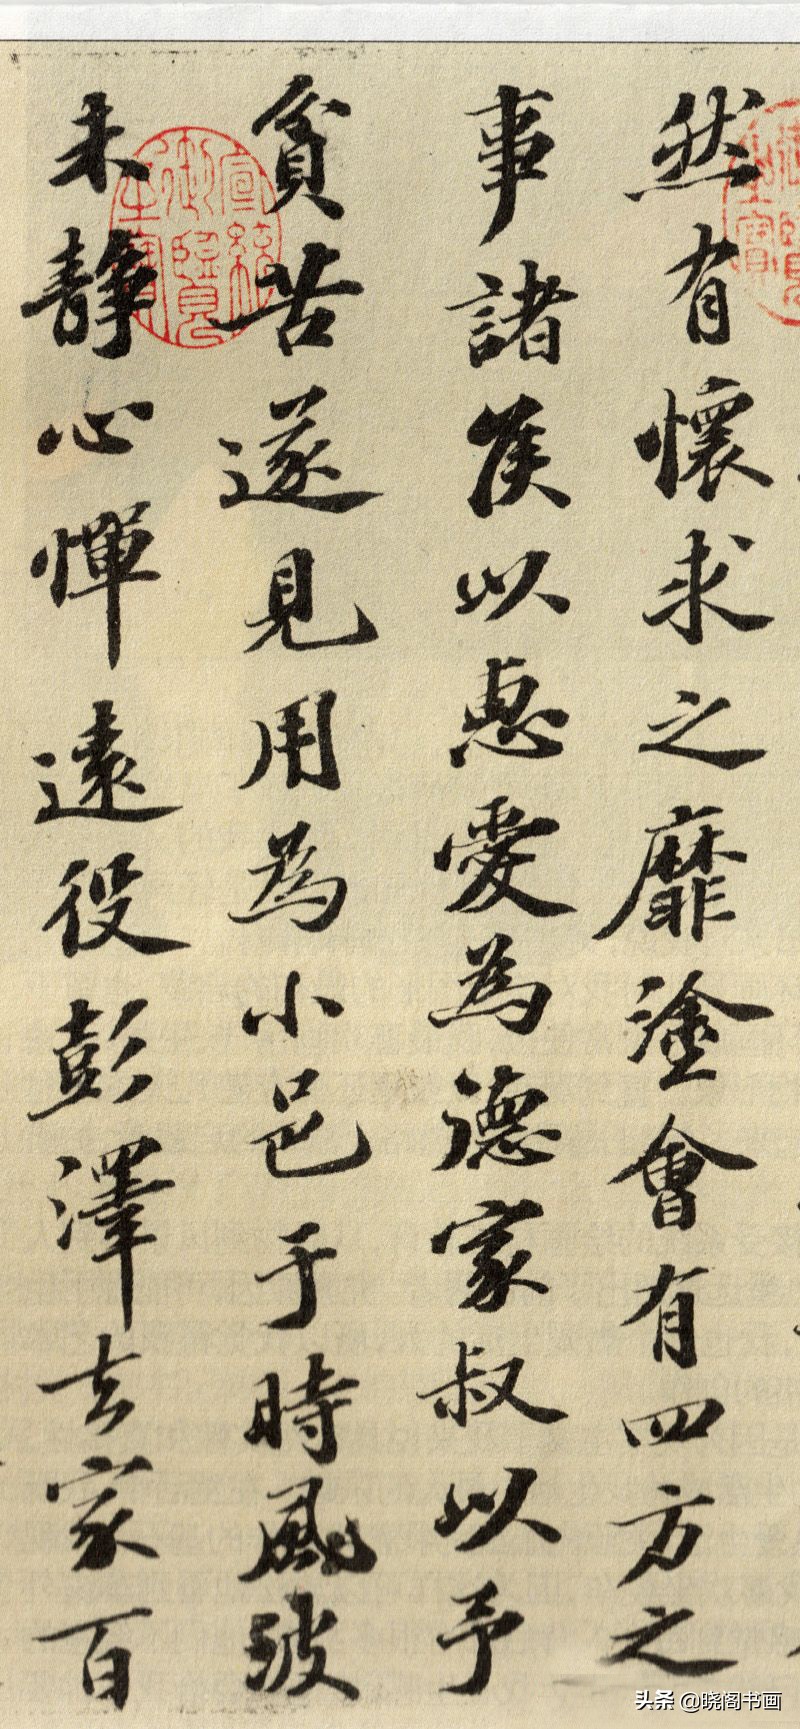 然有懷求之靡塗會有四方之
事諸侯以惠愛為德家叔以予
貧苦遂見用為小邑于時風波
未靜心憚遠役彭澤去家百
宣統御覽之寶
头条 @晓阁书画